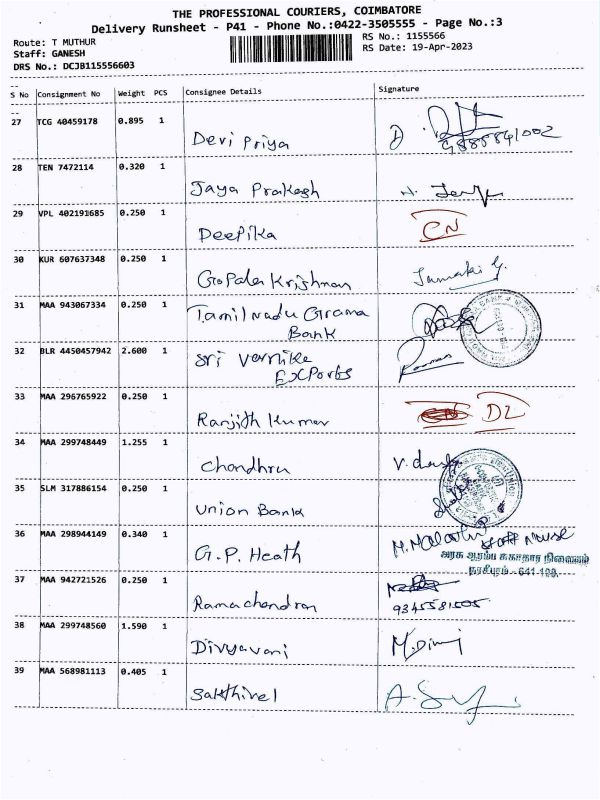 THE PROFESSIONAL COURIERS, COIMBATORE
Delivery Runsheet - P41 - Phone No.:0422-3505555 - Page No.:3
Route: T MUTHUR
Staff: GANESH
DRS No.: DCJB115556603
RS No.: 1155566
RS Date: 19-Apr-2023
S No Consignment No Weight PCS Consignee Details Signature
27 TCG 40459178 0.895 1 Devi Priya
28 TEN 7472114 0.320 1 Jaya Prakash
29 VPL 402191685 0.250 1 Deepika CN
30 KUR 607637348 0.250 1 Gopala Krishnan Janaki G.
31 MAA 943067334 0.250 1 Tamilnadu Grama
Bank
32 BLR 4450457942 2.600 1 Sri
Exports
33 MAA 296765922 0.250 1 Ranjith Kumar DL
34 MAA 299748449 1.255 1 Chandhru
35 SLM 317886154 0.250 1 Union Bank
36 MAA 298944149 0.340 1 G.P. Heath M. Malathi Staff Nurse
அரசு ஆரம்ப சுகாதார நிலையம்
37 MAA 942721526 0.250 1 Ramachandran
9345581505
38 MAA 299748560 1.590 1 Divyavani
39 MAA 568981113 0.405 1 Sakthivel